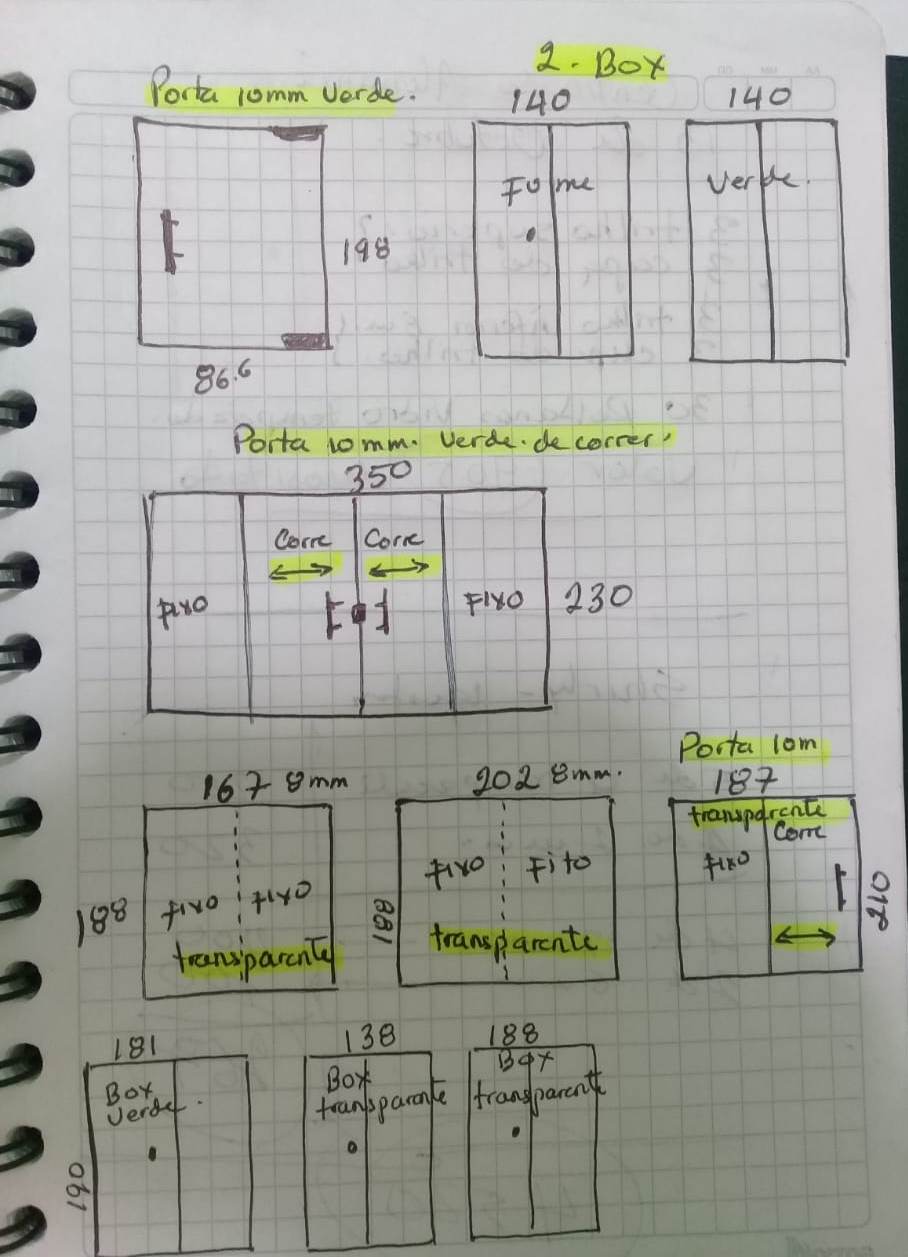 2. Box
Porta 10mm Verde.
140
140
Fume
Verde.
198
86.6
Porta 10mm. Verde. de correr.
350
Corre
Corre
Fixo
Fixo
230
Porta 10m
167 8mm
202 8mm.
187
transparente
Corre
Fixo
Fixo
Fixo
Fito
Fixo
188
188
210
transparente
transparente
181
138
188
Box
Verde.
Box
transparente
Box
transparente
190